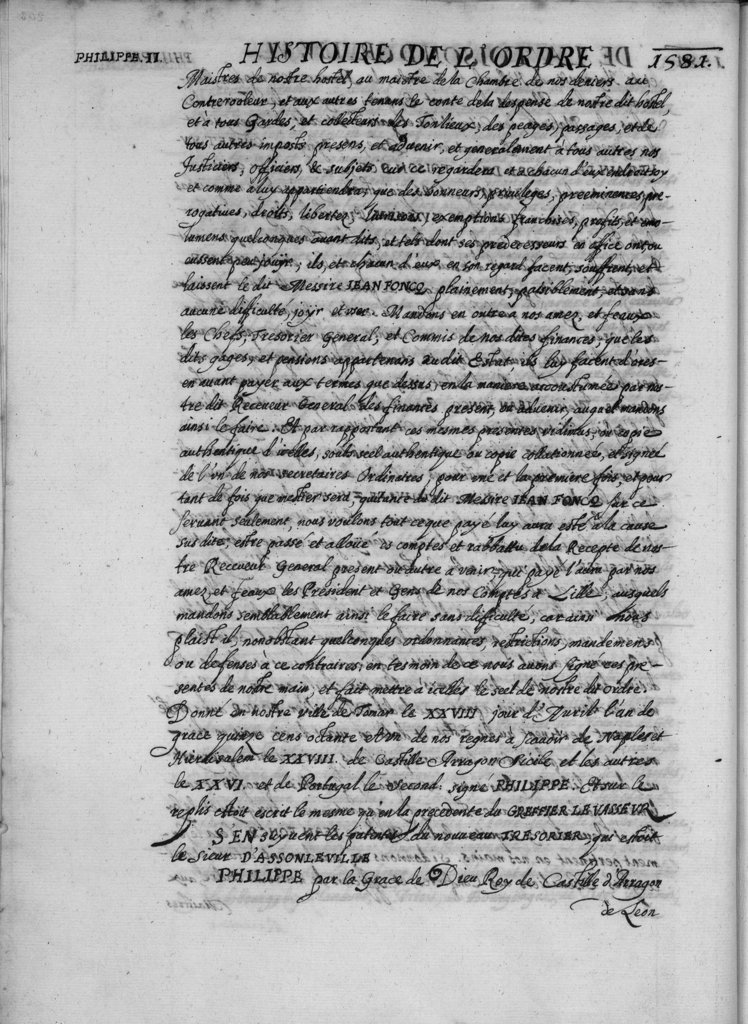 PHILIPPE. II. HISTOIRE DE L'ORDRE 1581.
Maistres de nostre hostel au maistre de la Chambre de nos deniers au
Controroolleur, et aux autres tenans le conte de la despense de nostre dit hostel,
et a tous Gardes, et collecteurs des Tonlieux, des peages, passages, et de
tous autres imposts presens, et advenir, et generalement à tous autres nos
Justiciers, officiers, & subjets qui ce regardera et a chacun d'eux endroit soy
et comme a luy appartiendra, que des honneurs, privileges, preeminences pre-
rogatives, droits, libertez, exemptions franchises, profits, et emo-
lumens quelconques avant dits, et tels dont ses predecesseurs en office ont ou
eussent peu jouyr, ils, et chacun d'eux en son regard facent, souffrent, et
laissent le dit Messire JEAN FONCQ plainement, paisiblement, et sans
aucune difficulté, joyr et user. Mandons en outre a nos amez, et feaux
les Chefs, Tresorier General, et Commis de nos dites finances, que les
dits gages, et pensions appartenans au dit Estat, ils luy facent d'ores-
en avant payer aux termes que dessus, en la maniere accoustumées par nos-
tre dit Receveur General des finances present, ou advenir, auquel mandons
ainsi le faire. Et par rapportant ces mesmes presentes vidimus, ou copie
authentique d'icelles, soubs seel authentique ou copie collationnée, et signée
de l'vn de nos secretaires Ordinaires, pour vne et la premiere fois, et pour
tant de fois que mestier sera quitance du dit Messire JEAN FONCQ sur ce
servant seulement, nous voulons tout ce que payé luy aura esté a la cause
sus dite, estre passé et alloüé es comptes et rabbattu de la Recepte de nos-
tre Receveur General present ou autre a venir qui payé l'aura par nos
amez, et feaux les President et Gens de nos Comptes a Lille, ausquels
mandons semblablement ainsi le faire sans difficulté, car ainsi nous
plaist il, nonobstant quelconques ordonnances, restrictions, mandemens
ou defenses à ce contraires, en tesmoin de ce nous avons signé ces pre-
sentes de nostre main, et fait mettre a icelles le seel de nostre dit ordre.
Donné en nostre ville de Tomar le XXVIII jour d'Avril l'an de
grace quinze cens octante et vn de nos regnes a scavoir de Naples et
Hierusalem le XXVIII. de Castille Arragon Sicile et les autres
le XXVI. et de Portugal le second. signé PHILIPPE. Et sur le
replis estoit escrit le mesme qu'en la precedente du GREFFIER LE VASSEUR
S'ENsuyvent les patentes du nouveau TRESORIER, qui estoit
le Sieur D'ASSONLEVILLE
PHILIPPE par la Grace de Dieu Roy de Castille d'Arragon
de Leon